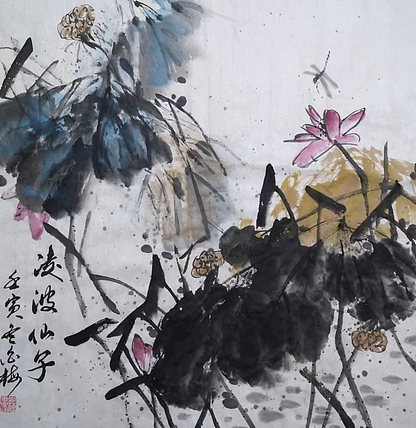 凌波仙子
壬寅梅